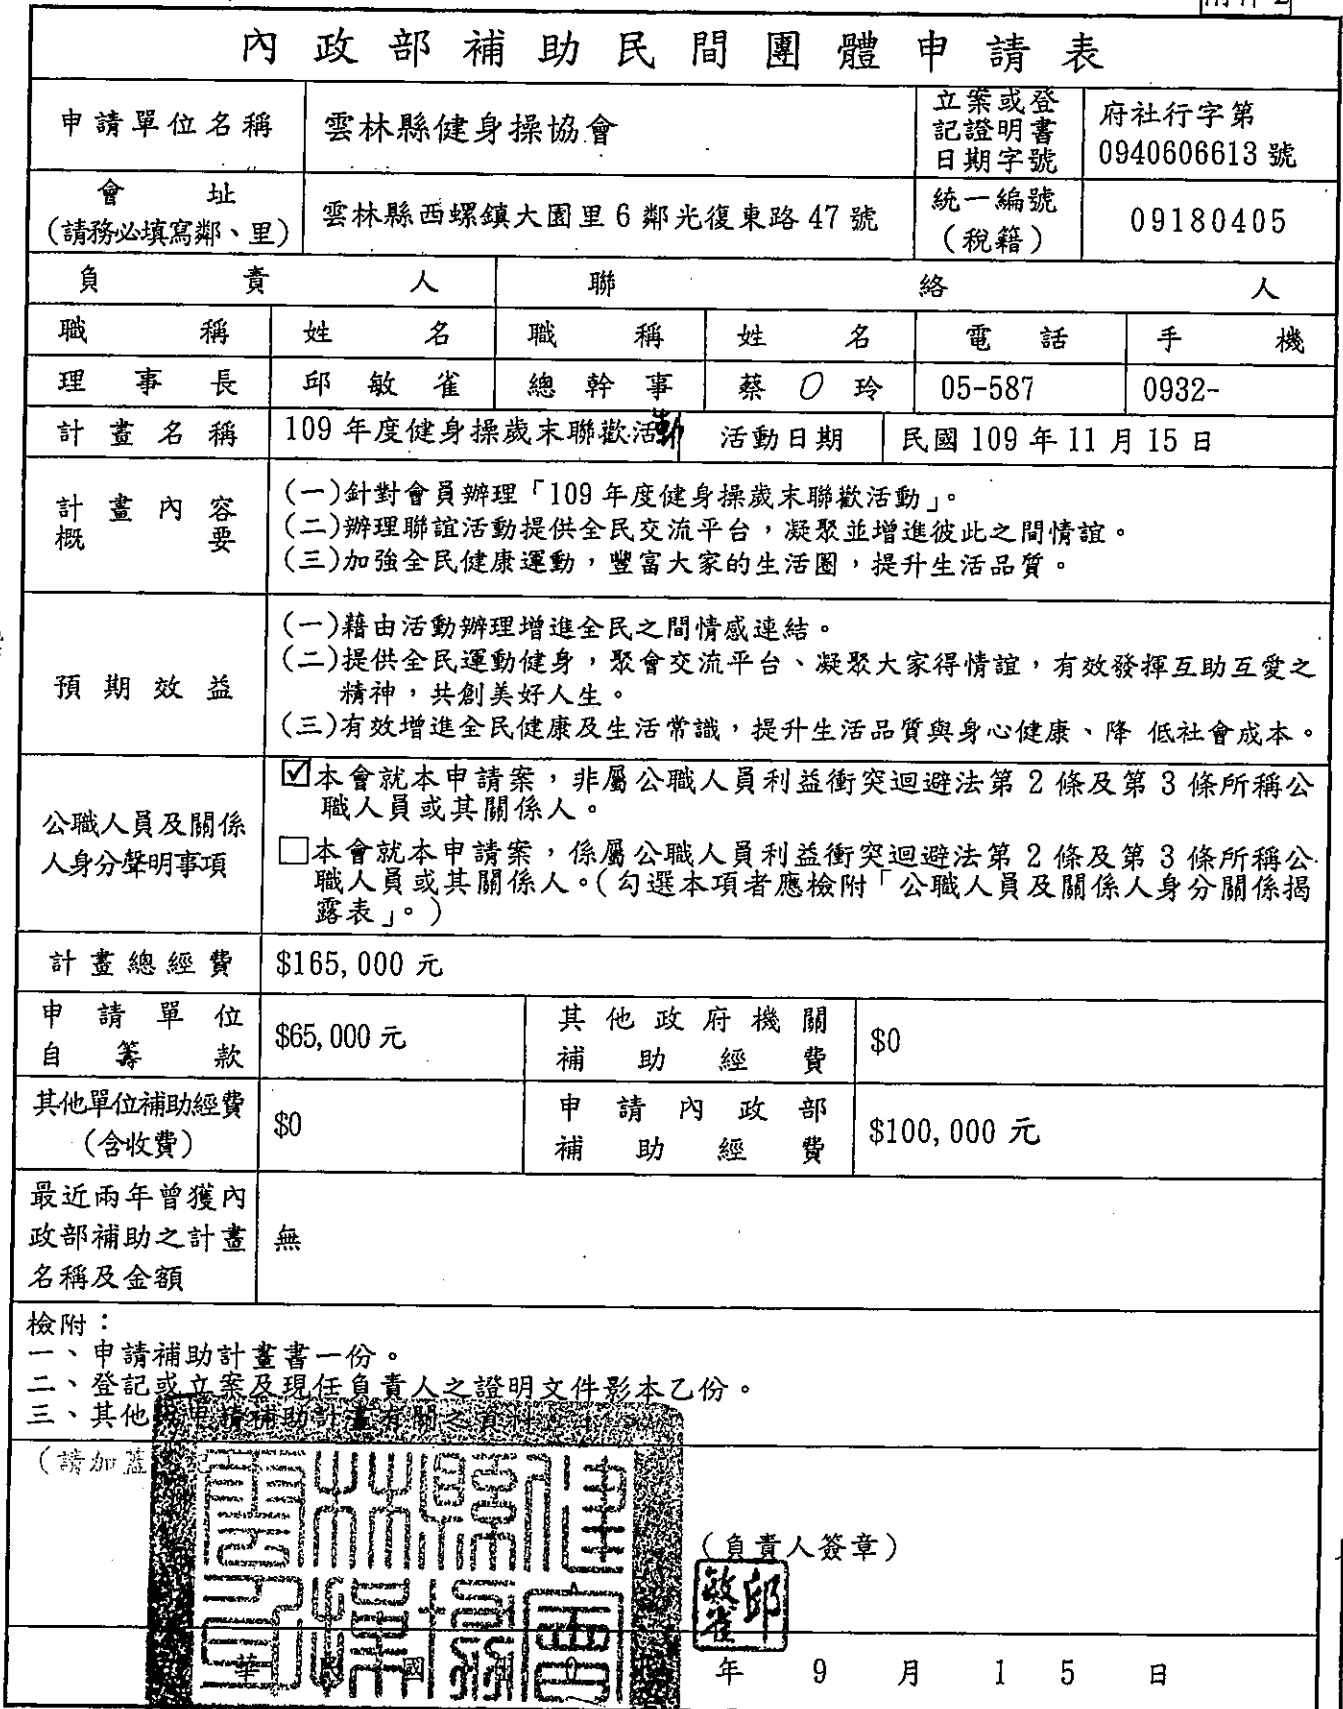 內政部補助民間團體申請表
申請單位名稱 雲林縣健身操協會 立案或登記證明書日期字號 府社行字第0940606613號
會址
(請務必填寫鄰、里) 雲林縣西螺鎮大園里6鄰光復東路47號 統一編號(稅籍) 09180405
負責人 聯絡人
職稱 姓名 職稱 姓名 電話 手機
理事長 邱敏雀 總幹事 蔡O玲 05-587 0932-
計畫名稱 109年度健身操歲末聯歡活動 活動日期 民國109年11月15日
計畫內容概要
(一)針對會員辦理「109年度健身操歲末聯歡活動」。
(二)辦理聯誼活動提供全民交流平台，凝聚並增進彼此之間情誼。
(三)加強全民健康運動，豐富大家的生活圈，提升生活品質。
預期效益
(一)藉由活動辦理增進全民之間情感連結。
(二)提供全民運動健身，聚會交流平台、凝聚大家得情誼，有效發揮互助互愛之
精神，共創美好人生。
(三)有效增進全民健康及生活常識，提升生活品質與身心健康、降 低社會成本。
公職人員及關係
人身分聲明事項
☑本會就本申請案，非屬公職人員利益衝突迴避法第2條及第3條所稱公
職人員或其關係人。
□本會就本申請案，係屬公職人員利益衝突迴避法第2條及第3條所稱公
職人員或其關係人。(勾選本項者應檢附「公職人員及關係人身分關係揭
露表」。)
計畫總經費 $165,000元
申請單位自籌款 $65,000元 其他政府機關補助經費 $0
其他單位補助經費(含收費) $0 申請內政部補助經費 $100,000元
最近兩年曾獲內
政部補助之計畫 無
名稱及金額
檢附：
一、申請補助計畫書一份。
二、登記或立案及現任負責人之證明文件影本乙份。
三、其他與申請補助計畫有關之資料
(請加蓋
(負責人簽章)
邱敏雀
華 國 年 9 月 15 日